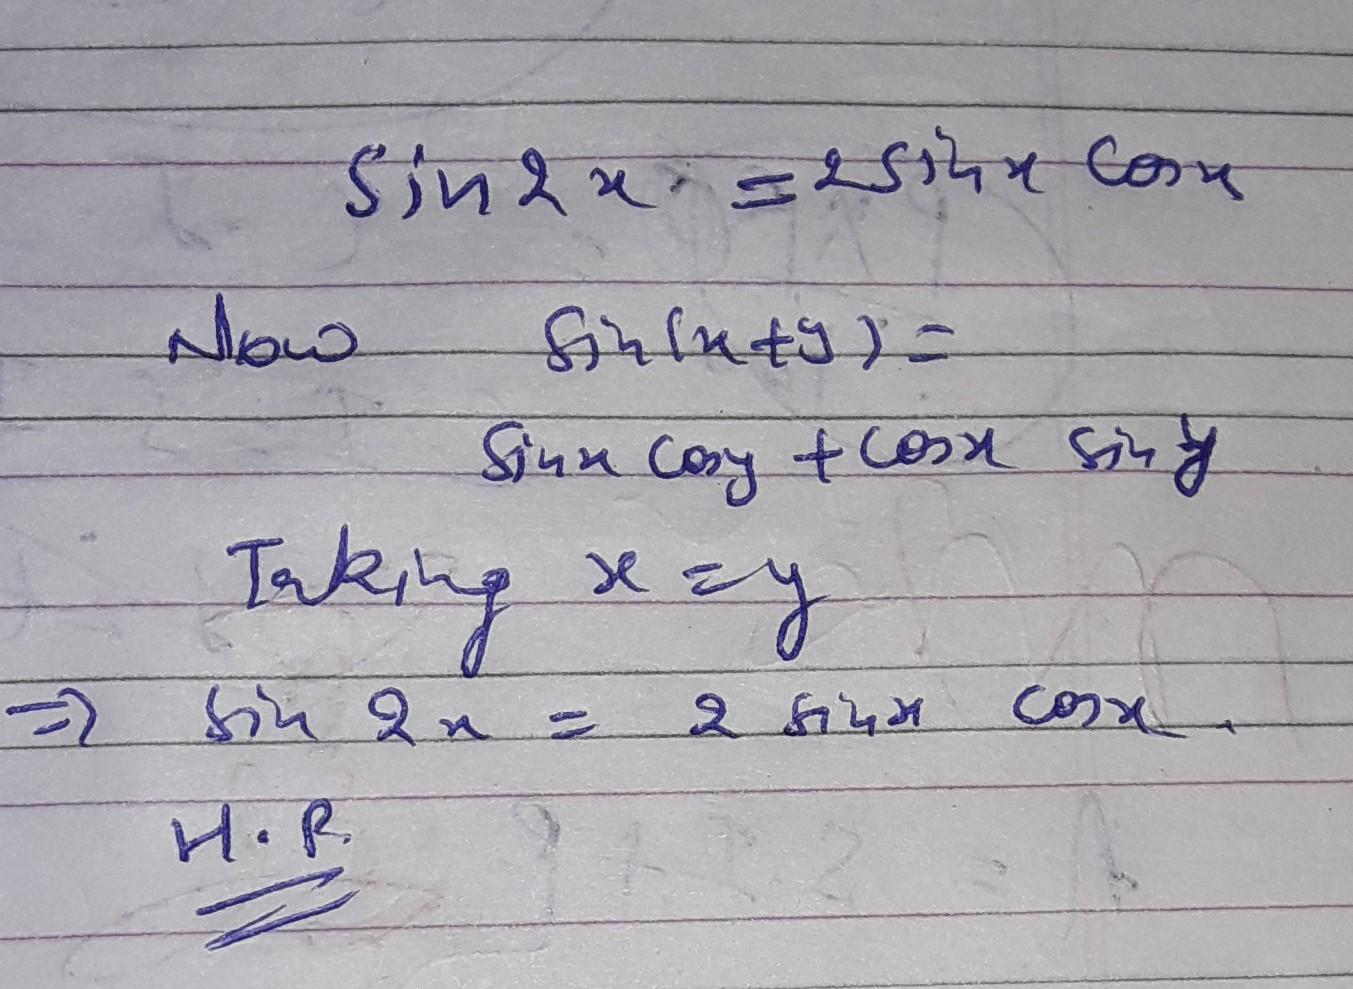 Sin 2x = 2 Sinx Cosx
Now Sin(x+y) =
Sinx Cosy + Cosx Siny
Taking x = y
⇒ Sin 2x = 2 Sinx Cosx.
H.P.